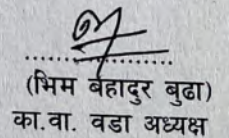 (भिम बहादुर बुढा)
का.वा. वडा अध्यक्ष